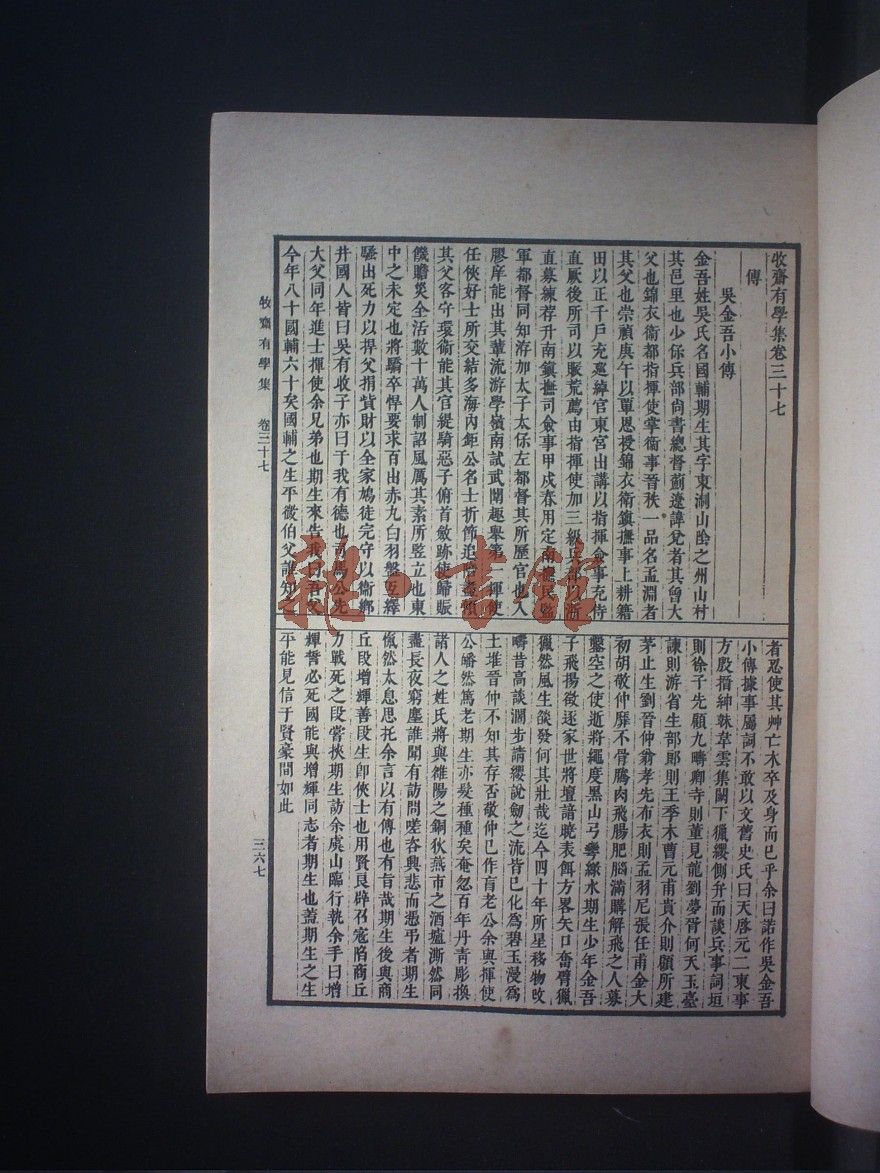 牧齋有學集卷三十七
傳
吳金吾小傳
金吾姓吳氏名國輔期生其字東澗山陰之州山村
其邑里也少保兵部尚書總督薊遼諱兌者其曾大
父也錦衣衛都指揮使掌衞事晉秩一品名孟淵者
其父也崇禎庚午以覃恩授錦衣衛鎮撫事上耕籍
田以正千戶充廵綽官東宮出講以指揮僉事充侍
直厥後所司以賑荒薦由指揮使加三級
直募練荐升南鎮撫司僉事甲戌春用定南
軍都督同知洊加太子太保左都督其所歷官也人
膠庠能出其輩流游學嶺南試武闈趣舉第一揮使
任俠好士所交結多海內鉅公名士折節追陪
其父客守環衞能其官緹騎惡子俯首斂跡使歸賑
饑贍災全活數十萬人制詔風厲其素所豎立也東
中之未定也將驕卒悍要求百出赤丸白羽盤互繹
騷出死力以捍父捐貲財以全家鳩徒完守以衞鄉
井國人皆曰吳有收子亦曰于我有德也司馬公先
大父同年進士揮使余兄弟也期生來告我曰吾父
今年八十國輔六十矣國輔之生平微伯父誰知之
者忍使其艸亡木卒及身而已乎余曰諾作吳金吾
小傳據事屬詞不敢以文舊史氏曰天啓元二東事
方殷搢紳韎韐雲集闕下獵纓側弁而談兵事詞垣
則徐子先顧九疇卿寺則董見龍劉夢胥何天玉臺
諫則游省生部郎則王季木曹元甫貴介則顧所建
茅止生劉晉仲翁孝先布衣則孟羽尼張任甫金大
初胡敬仲靡不骨騰肉飛腸肥腦滿購解飛之人募
鑿空之使逝將繩度黑山弓彎綠水期生少年金吾
子飛揚欲逐家世將壇諳曉表餌方畧矢口奮臂獵
獵然風生燄發何其壯哉迄今四十年所星移物攺
疇昔高談濶步請纓說劒之流皆已化為碧玉漫為
土堆晉仲不知其存否敬仲已作盲老公余與揮使
公皤然篤老期生亦髮種種矣奄忽百年丹靑彫換
諸人之姓氏將與雒陽之銅狄燕市之酒壚澌然同
盡長夜窮塵誰聞有訪問嗟咨興悲而憑弔者期生
愾然太息思托余言以有傳也有旨哉期生後與商
丘段增輝善段生卽俠士也用賢良辟召寇陷商丘
力戰死之段嘗挾期生訪余虞山臨行執余手曰增
輝誓必死國能與增輝同志者期生也蓋期生之生
平能見信于賢豪間如此
牧齋有學集 卷三十七
三六七
雜·書館